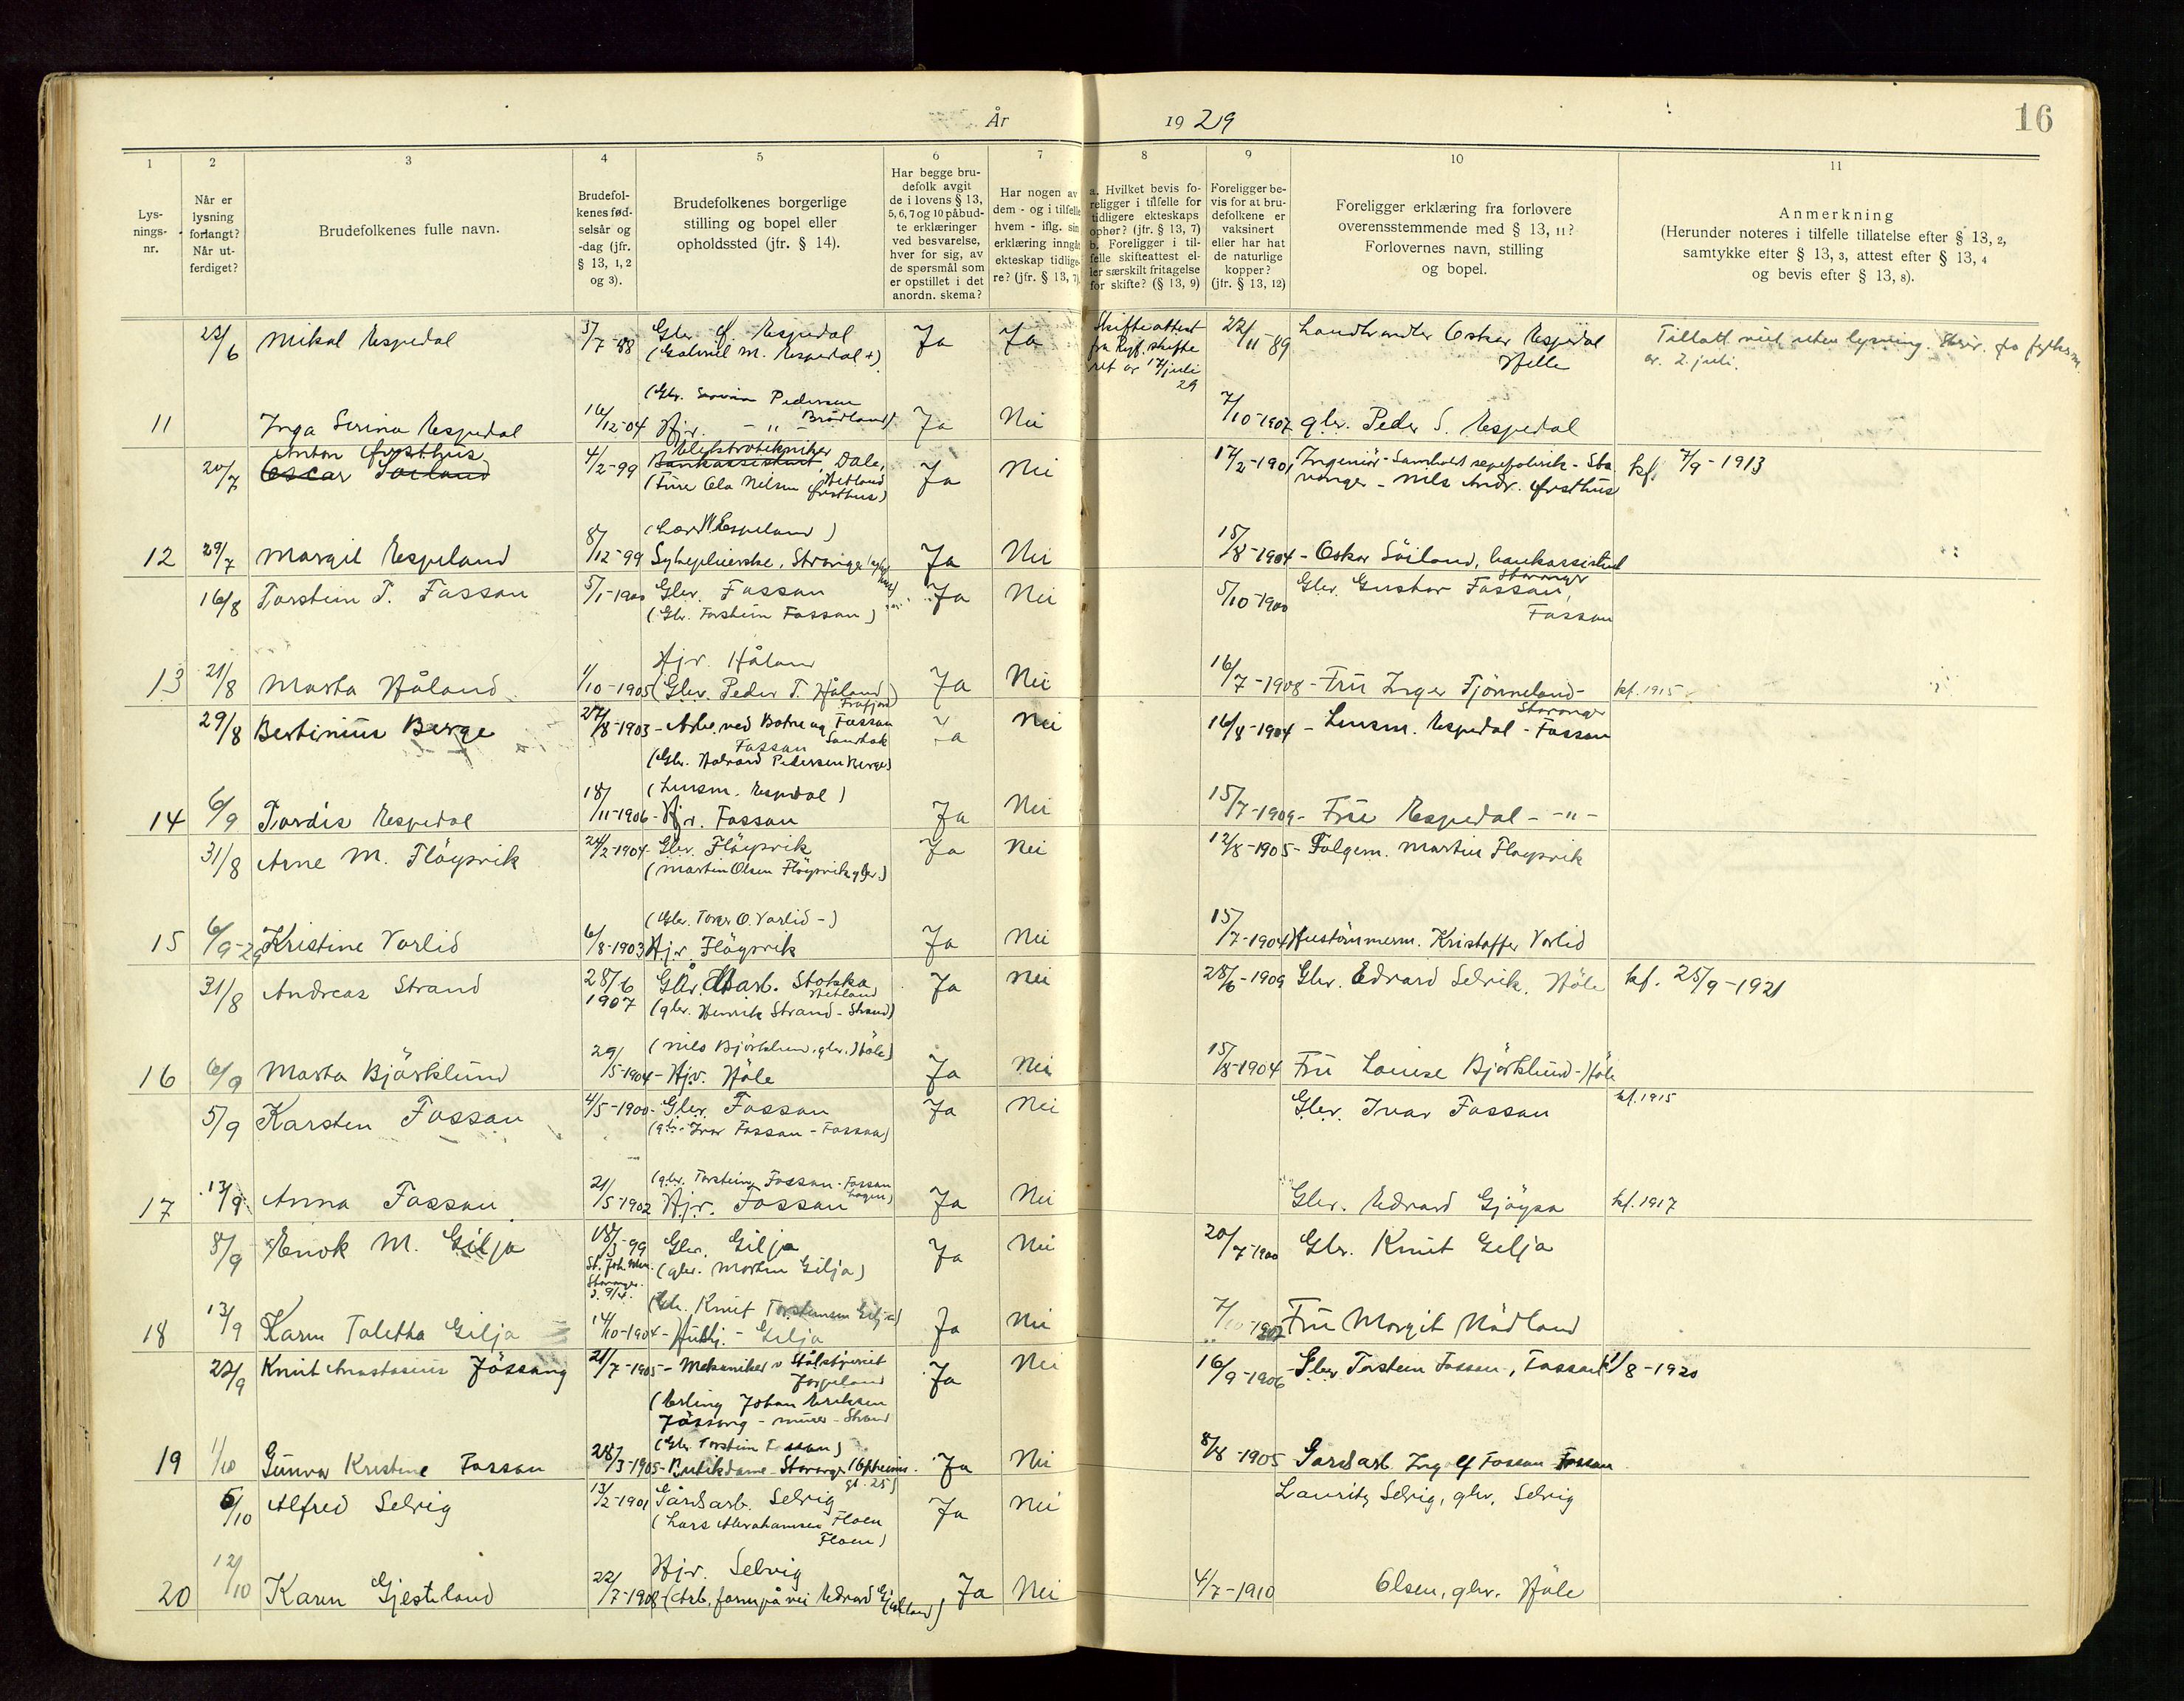 År
19 29
16
1
2
3
4
5
6
7
8
9
10
11
Lys-
nings-
nr.
Når er
lysning
forlangt?
Når ut-
ferdiget?
Brudefolkenes fulle navn.
Brudefol-
kenes fød-
selsår og
-dag (jfr.
§ 13, 1, 2
og 3).
Brudefolkenes borgerlige
stilling og bopel eller
opholdssted (jfr. § 14).
Har begge bru-
defolk avgit
de i lovens § 13,
5, 6, 7 og 10 påbud-
te erklæringer
ved besvarelse,
hver for sig, av
de spørsmål som
er opstillet i det
anordn. skema?
Har nogen av
dem - og i tilfelle
hvem - iflg. sin
erklæring inngåt
ekteskap tidlige-
re? (jfr. § 13, 7)
a. Hvilket bevis fo-
religger i tilfelle for
tidligere ekteskaps
ophør? (jfr. § 13, 7)
b. Foreligger i til-
felle skifteattest el-
ler særskilt fritagelse
for skifte? (§ 13, 9)
Foreligger be-
vis for at bru-
defolkene er
vaksinert
eller har hat
de naturlige
kopper?
(jfr. § 13, 12)
Foreligger erklæring fra forlovere
overensstemmende med § 13, 11?
Forlovernes navn, stilling
og bopel.
Anmerkning
(Herunder noteres i tilfelle tillatelse efter § 13, 2,
samtykke efter § 13, 3, attest efter § 13, 4
og bevis efter § 13, 8).
Mikal Espedal
Gbr. Espedal
(Gabriel M. Espedal +)
Ja
Ja
Skifteattest
fra Ryf. skifte
ret av 17/juli
29
22/11-89
Landhandler Oskar Espedal
Helle
Tillatt viet uten lysning.
av 2. juli.
11
Inga Serina Espedal
16/12-04
(Gbr. Pedersen
Brådland)
Hjv. - " -
Ja
Nei
7/10-1907
gbr. Peder S. Espedal
20/7
Anton Ørsthus
Oscar Søiland
4/2-99
Elektrotekniker
Bankassistent, Dale,
Hetland
(Ola Nelsen Ørsthus)
Ja
Nei
17/2-1901
Ingeniør
vanger - Nils Andr. Ørsthus
kf. 7/9-1913
12
29/7
Margit Espeland
8/12-99
(Espeland)
Sykepleierske, Stavanger
Ja
Nei
15/8-1904 - Oskar Söiland, bankassistent
Stavanger
16/8
Torstein T. Fossan
5/1-1900
Gbr. Fossan
(Gbr. Torstein Fossan)
Ja
Nei
5/10-1900
Gbr. Gustav Fossan,
Fossan
13
21/8
Marta Håland
1/10-1905
Hjv. Håland
(Gbr. Peder T. Håland)
Frafjord
Ja
Nei
16/7-1908 - Frü Inger Tjönneland-
Stavanger
kf. 1915
29/8
Bertinius Berge
27/8-1903
- Arb. ved Botne og Fossan
Fossan Sandtak
(Gbr. Halvard Pedersen Berge)
Nei
16/8-1904 - Lensm. Espedal - Fossan
14
6/9
Tordis Espedal
18/11-1906
(Lensm. Espedal)
- Hjv. Fossan
Ja
Nei
15/7-1909 - Frü Espedal - " -
31/8
Arne M. Flöysvik
24/2-1904
Gbr. Flöysvik
(Martin Olsen Flöysvik gbr.)
Ja
Nei
12/8-1905 - Folgem. Martin Flöysvik
15
6/9-29
Kristine Varlid
6/8-1903
(Gbr. Tore O. Varlid -)
Hjv. Flöysvik
Ja
Nei
15/7-1904
Hustömmerm. Kristoffer Varlid
31/8
Andreas Strand
28/6
1907
Gårdsarb. Stokka
Hetland
(gbr. Henrik Strand - Strand)
Ja
Nei
28/6-1909
Gbr. Edvard Selvik, Höle
kf. 25/9-1921
16
6/9
Marta Björklünd
29/5-1904
(Nils Björklund, gbr., Höle)
- Hjv. Höle
Ja
Nei
15/8-1904
Frü Louise Björklünd - Höle
5/9
Karsten Fossan
4/5-1900
- Gbr. Fossan
(gbr. Ivar Fossan - Fossan)
Ja
Nei
Gbr. Ivar Fossan
kf. 1915
17
13/9
Anna Fossan
21/5-1902
(gbr. Torstein Fossan - Fossan
Hagen)
Hjv. Fossan
Ja
Nei
Gbr. Edvard Gjöysa
kf. 1917
8/9
Enok M. Gilja
18/3-99
Stavanger
Gbr. Gilja
(gbr. Morten Gilja)
Ja
Nei
20/7-1900
Gbr. Knut Gilja
18
13/9
Karen Taletta Gilja
14/10-1904
(Gbr. Knut Torsteinsen Gilja)
- Gilja
Ja
Nei
Frü Margit Mådland
22/9
Knut Anastasius Jössang
21/7-1905
- Mekaniker v Stålstöperiet
Jörpeland
(Erling Johan Eriksen
Jössang - murer - Strand
Ja
Nei
16/9-1906
- Gbr. Torstein Fossan, Fossan
8-1920
19
1/10
Günvor Kristine Fossan
28/3-1905
(Gbr. Torstein Fossan)
- Butikdame - Stavanger (Opheims
gt. 25)
Ja
Nei
8/8-1905
Gårdsarb. Ingolf Fossan Fossan
5/10
Alfred Selvig
13/2-1901
Gårdsarb. Selvig
(Lars Abrahamsen Floen
Floen)
Ja
Nei
Lauritz Selvig, gbr. Selvig
20
12/10
Karen Gjesteland
22/7-1908
Hjv. Selvig
(Arb. form. på vei Edvard Gjesteland)
Ja
Nei
4/7-1910
Olsen, gbr. Höle